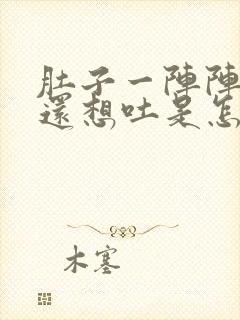 肚子一陣陣
還想吐是怎
木塞